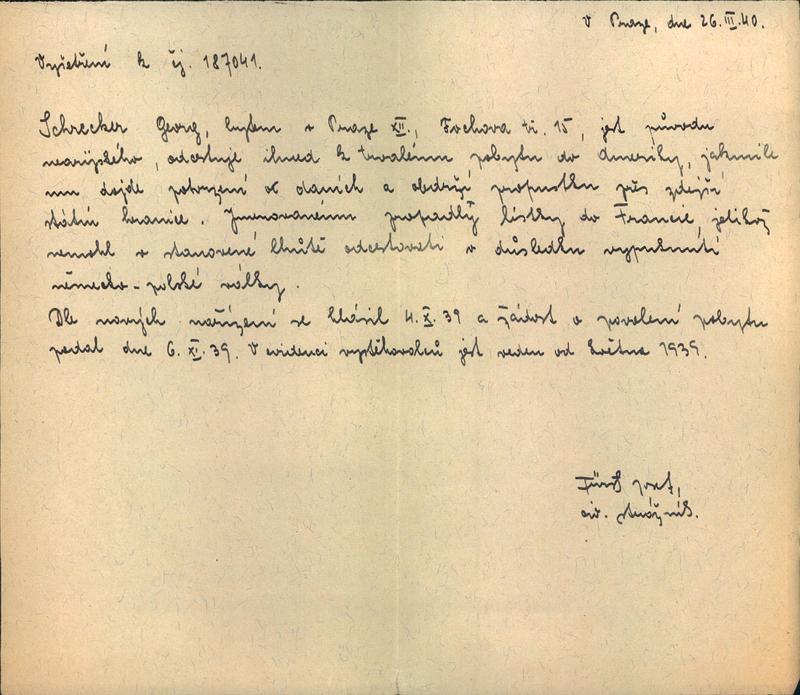 V Praze, dne 26.III.40.
Vyšetření k čj. 187041.
Schrecker Georg, bytem v Praze XII., Fochova tř. 15, jest původu
nearijského, odcestuje ihned k trvalému pobytu do Ameriky, jakmile
mu dojde potvrzení o daních a obdrží propustku přes zdejší
státní hranice. Jmenovanému propadly lístky do Francie, jelikož
nemohl v stanovené lhůtě odcestovati v důsledku vypuknutí
německo-polské války.
Dle nových nařízení se hlásil 4.X.39 a žádost o povolení pobytu
podal dne 6.XI.39. V evidenci vystěhovalců jest veden od května 1939.
civ. strážník.